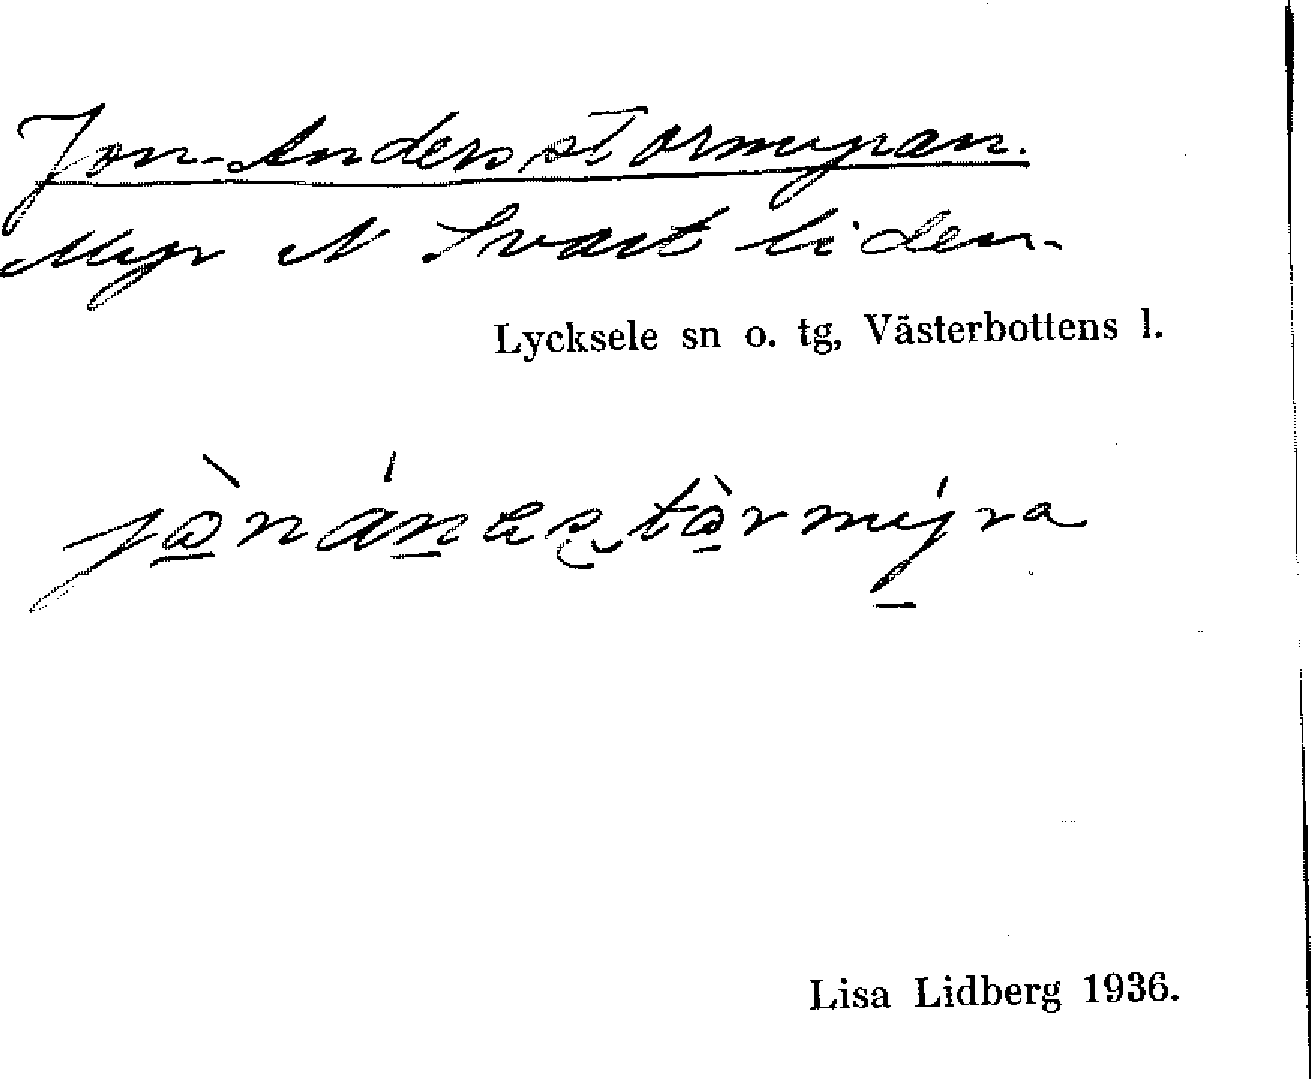 Jon-Andersstormyran.
Myr N Svartliden
Lycksele sn o. tg, Västerbottens l.
jò̱náṉɐʂtò̱rmýra
Lisa Lidberg 1936.